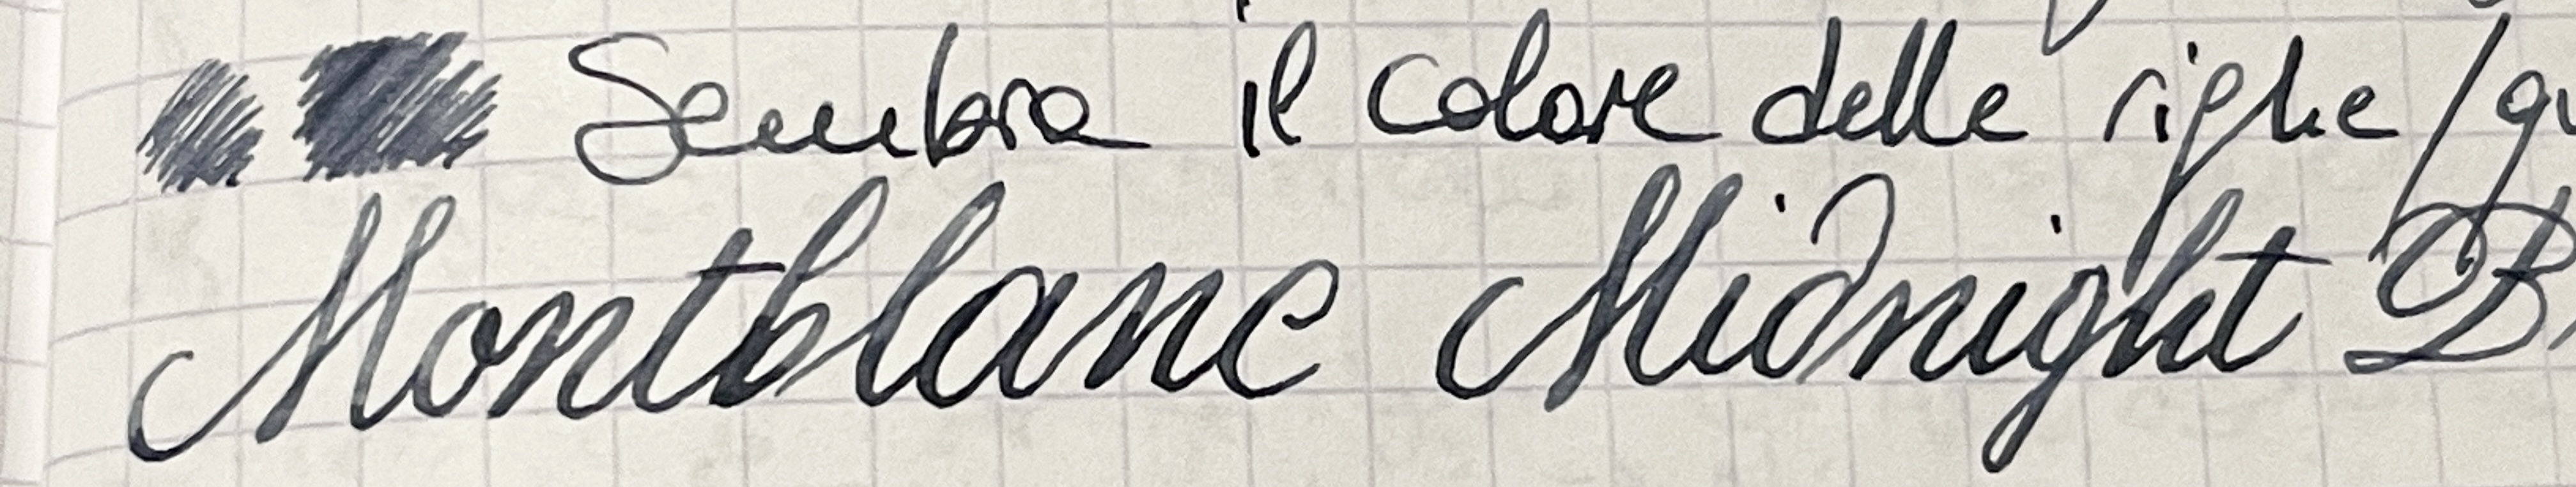 Sembra il colore delle righe/qu
Montblanc Midnight B